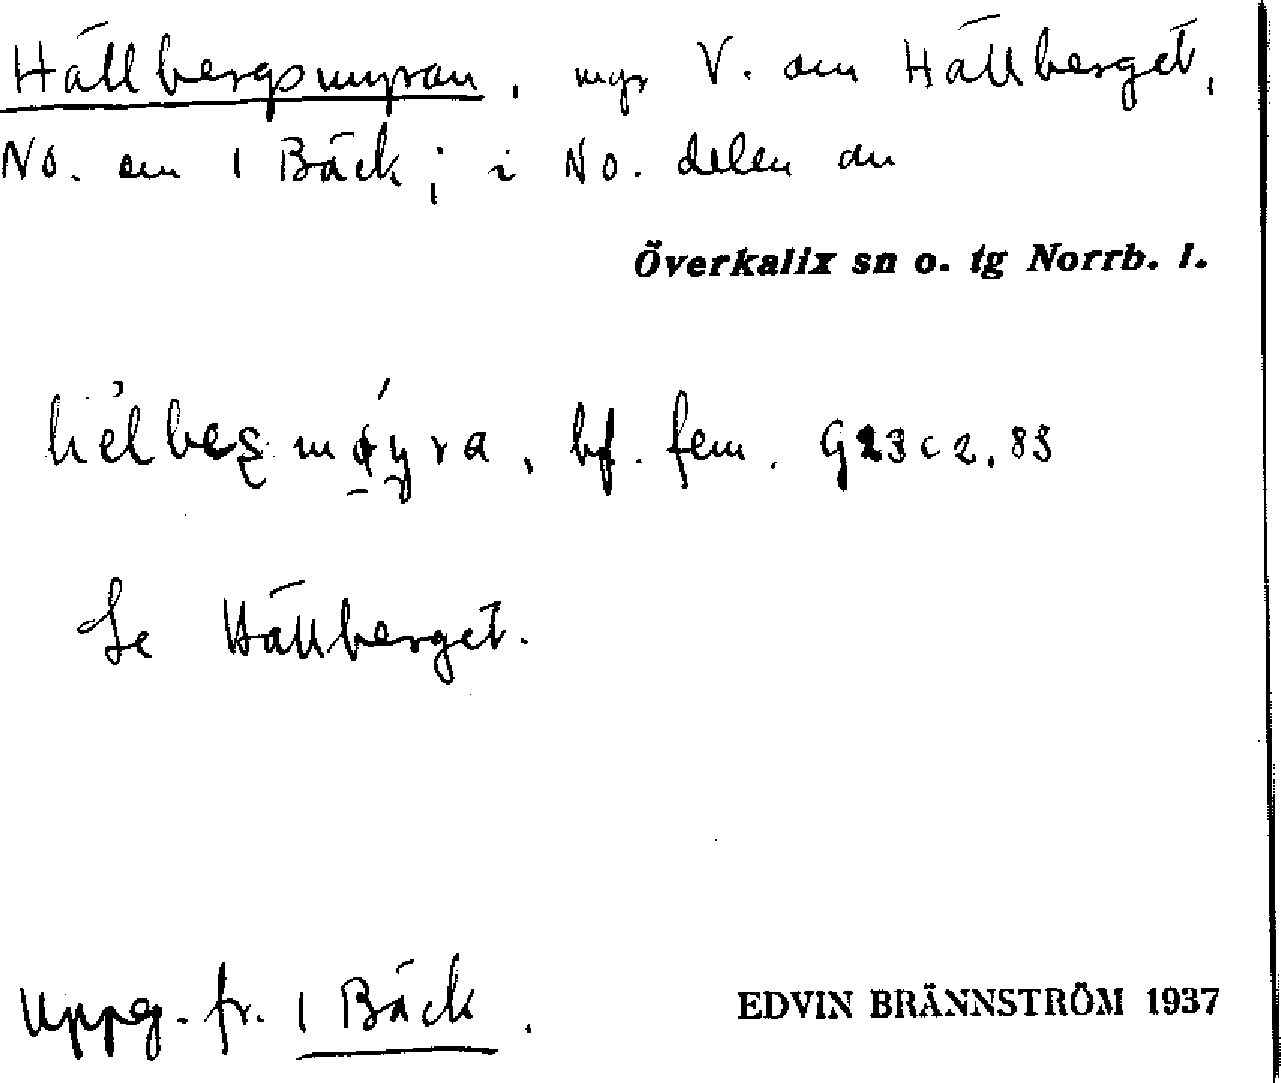 Hällbergsmyran, myr V. om Hällberget,
NO. om 1 Bäck; i NO. delen av
Överkalix sn o. tg Norrb. l.
bf. fem.
Se Hällberget.
Uppg. fr. 1 Bäck.
EDVIN BRÄNNSTRÖM 1937